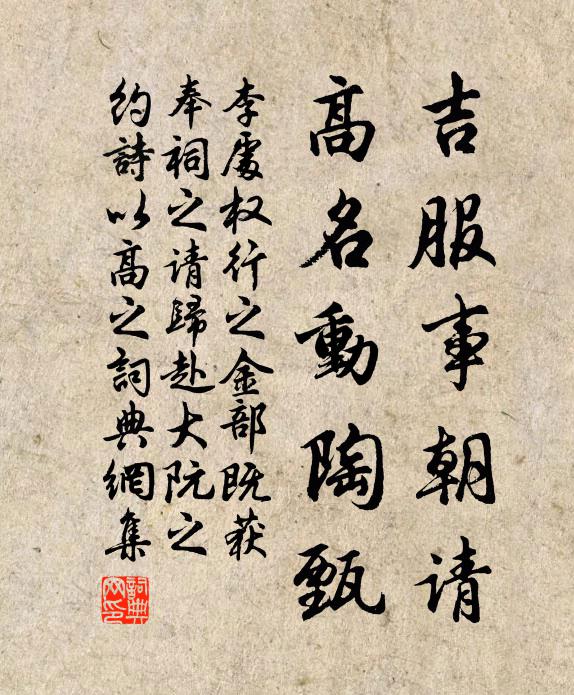 吉服事朝请
高名動陶甄
李處权行之金部既获
奉祠之请歸赴大阮之
约詩以高之词典網集
詞典网印